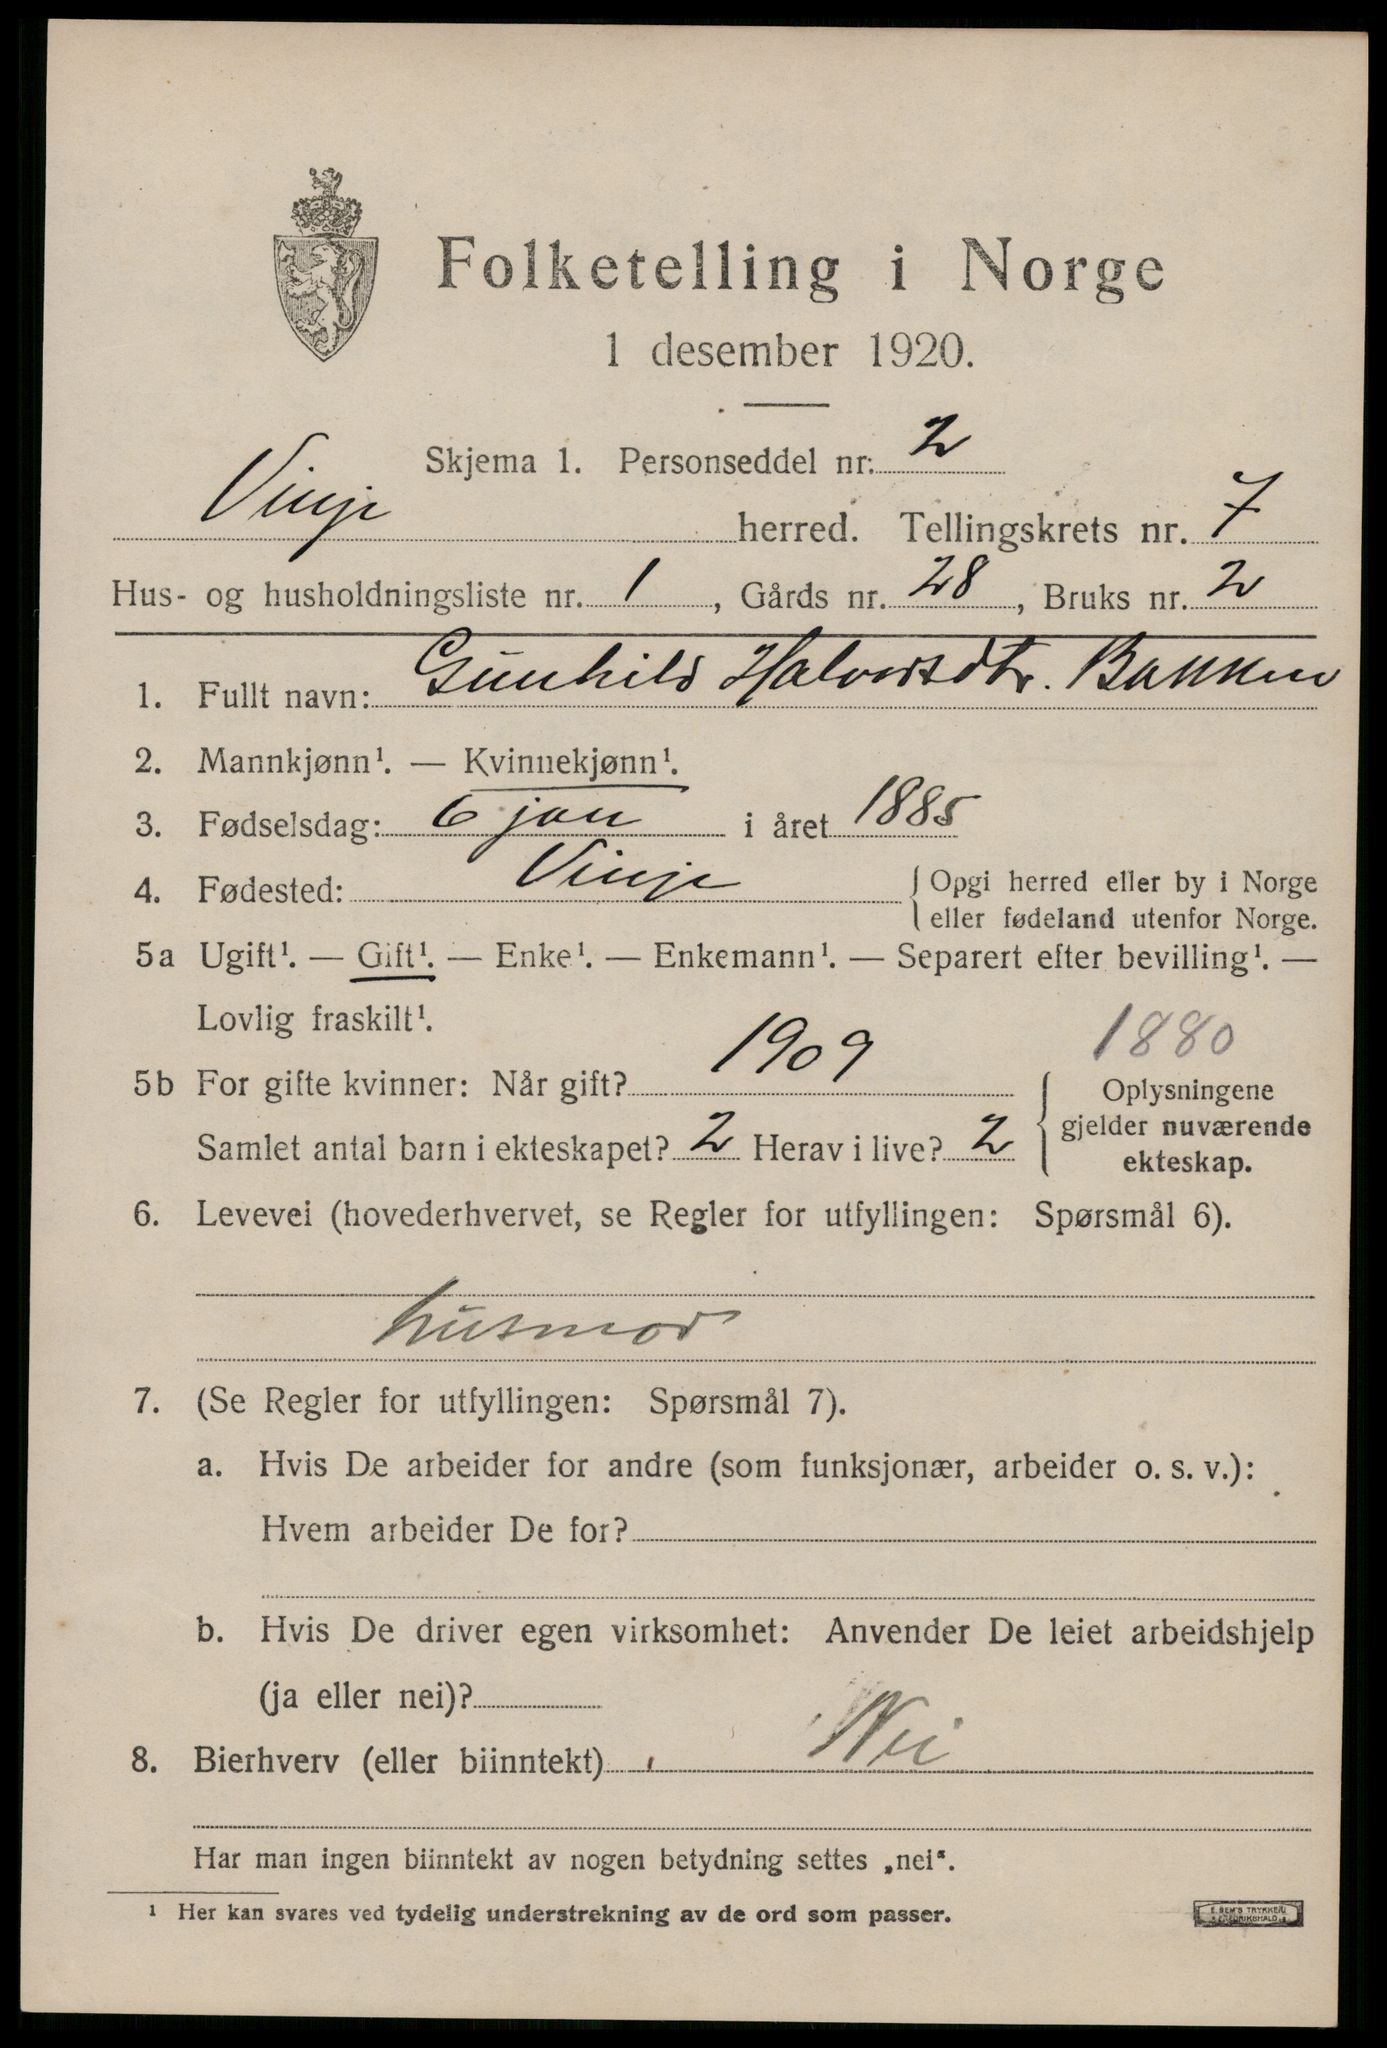 Folketelling i Norge
1 desember 1920.
Skjema 1. Personseddel nr. 2
Vinje herred. Tellingskrets nr. 7
Hus- og husholdningsliste nr. 1, Gårds nr. 28, Bruks nr. 2
1. Fullt navn: Gunhild Halvorsdtr. Bakken
2. Mannkjønn¹. — Kvinnekjønn¹.
3. Fødselsdag: 6 jan i året 1885
4. Fødested: Vinje { Opgi herred eller by i Norge
eller fødeland utenfor Norge.
5a Ugift¹. — Gift¹. — Enke¹. — Enkemann¹. — Separert efter bevilling¹. —
Lovlig fraskilt¹.
1880
5b For gifte kvinner: Når gift? 1909 { Oplysningene
gjelder nuværende
Samlet antal barn i ekteskapet? 2 Herav i live? 2
ekteskap.
6. Levevei (hovederhvervet, se Regler for utfyllingen: Spørsmål 6).
husmor
7. (Se Regler for utfyllingen: Spørsmål 7).
a. Hvis De arbeider for andre (som funksjonær, arbeider o. s. v.):
Hvem arbeider De for?
b. Hvis De driver egen virksomhet: Anvender De leiet arbeidshjelp
(ja eller nei)?
8. Bierhverv (eller biinntekt) Nei
Har man ingen biinntekt av nogen betydning settes „nei“.
¹ Her kan svares ved tydelig understrekning av de ord som passer.
E. SEM'S TRYKKERI
FREDRIKSHALD